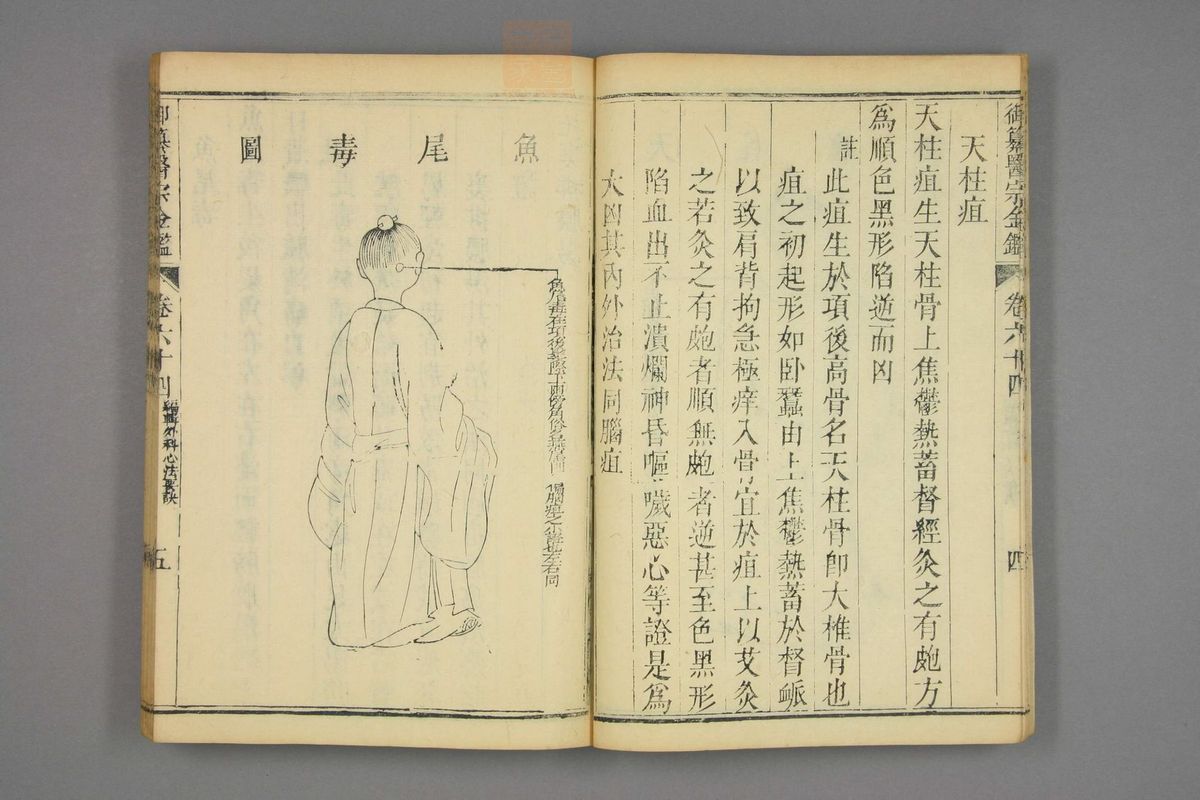 御纂醫宗金鑑
卷六十四
四
天柱疽
天柱疽生天柱骨上焦鬱熱蓄督經灸之有皰方
爲順色黑形陷逆而凶
註
此疽生於項後高骨名天柱骨卽大椎骨也
疽之初起形如卧蠶由上焦鬱熱蓄於督脈
以致肩背拘急極痒入骨宜於疽上以艾灸
之若灸之有皰者順無皰者逆甚至色黑形
陷血出不止潰爛神昏嘔噦惡心等證是爲
大凶其內外治法同腦疽
魚尾毒圖
魚尾毒在項後髮際下兩傍角俗名燕窩
偏腦疽之小者也左右同
御纂醫宗金鑑
卷六十四
編輯外科心法要訣
五